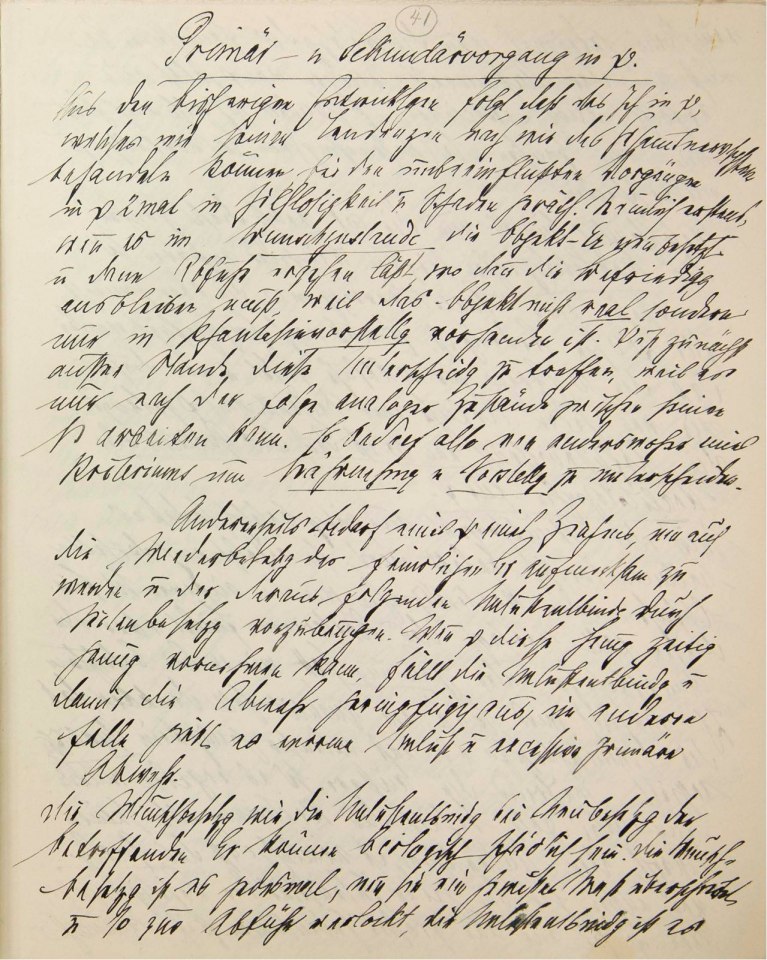 41
Primär- u Sekundärvorgang in ψ.
Aus den bisherigen Entwicklgen folgt, daß das Ich in ψ,
welches wir seinen Tendenzen nach wie das Gesamtnervensystem
behandeln können bei den unbeeinflußten Vorgängen
in ψ 2mal in Hilflosigkeit u Schaden geräth. Nämlich erstens,
wenn es im Wunschzustande die Objekt-Er neu besetzt
u dann Abfuhr ergehen läßt, wo dann die Befriedigg
ausbleiben muß, weil das Objekt nicht real sondern
nur in Phantasievorstellg vorhanden ist. ψ ist zunächst
außer Stande, diese Unterscheidg zu treffen, weil es
nur nach der Folge analoger Zustände zwischen seinen
N arbeiten kann. Es bedarf also von anderswoher eines
Kriteriums um Wahrnehmg u Vorstellg zu unterscheiden.
Andererseits bedarf ψ eines Zeichens, um auf
die Wiederbesetzg des feindlichen Er aufmerksam zu
werden u der daraus folgenden Unlustentbindg durch
Seitenbesetzg vorzubeugen. Wenn ψ diese Hemmg zeitig
genug vornehmen kann, fällt die Unlustentbindg u
damit die Abwehr geringfügig aus, im anderen
Falle gibt es enorme Unlust u excessive primäre
Abwehr.
Die Wunschbesetzg wie die Unlustentbindg bei Neubesetzg der
betreffenden Er können biologisch schädlich sein. Die Wunsch-
besetzg ist es jedesmal, wenn sie ein gewisses Maß überschreitet
u so zur Abfuhr verlockt, die Unlustentbindg ist es